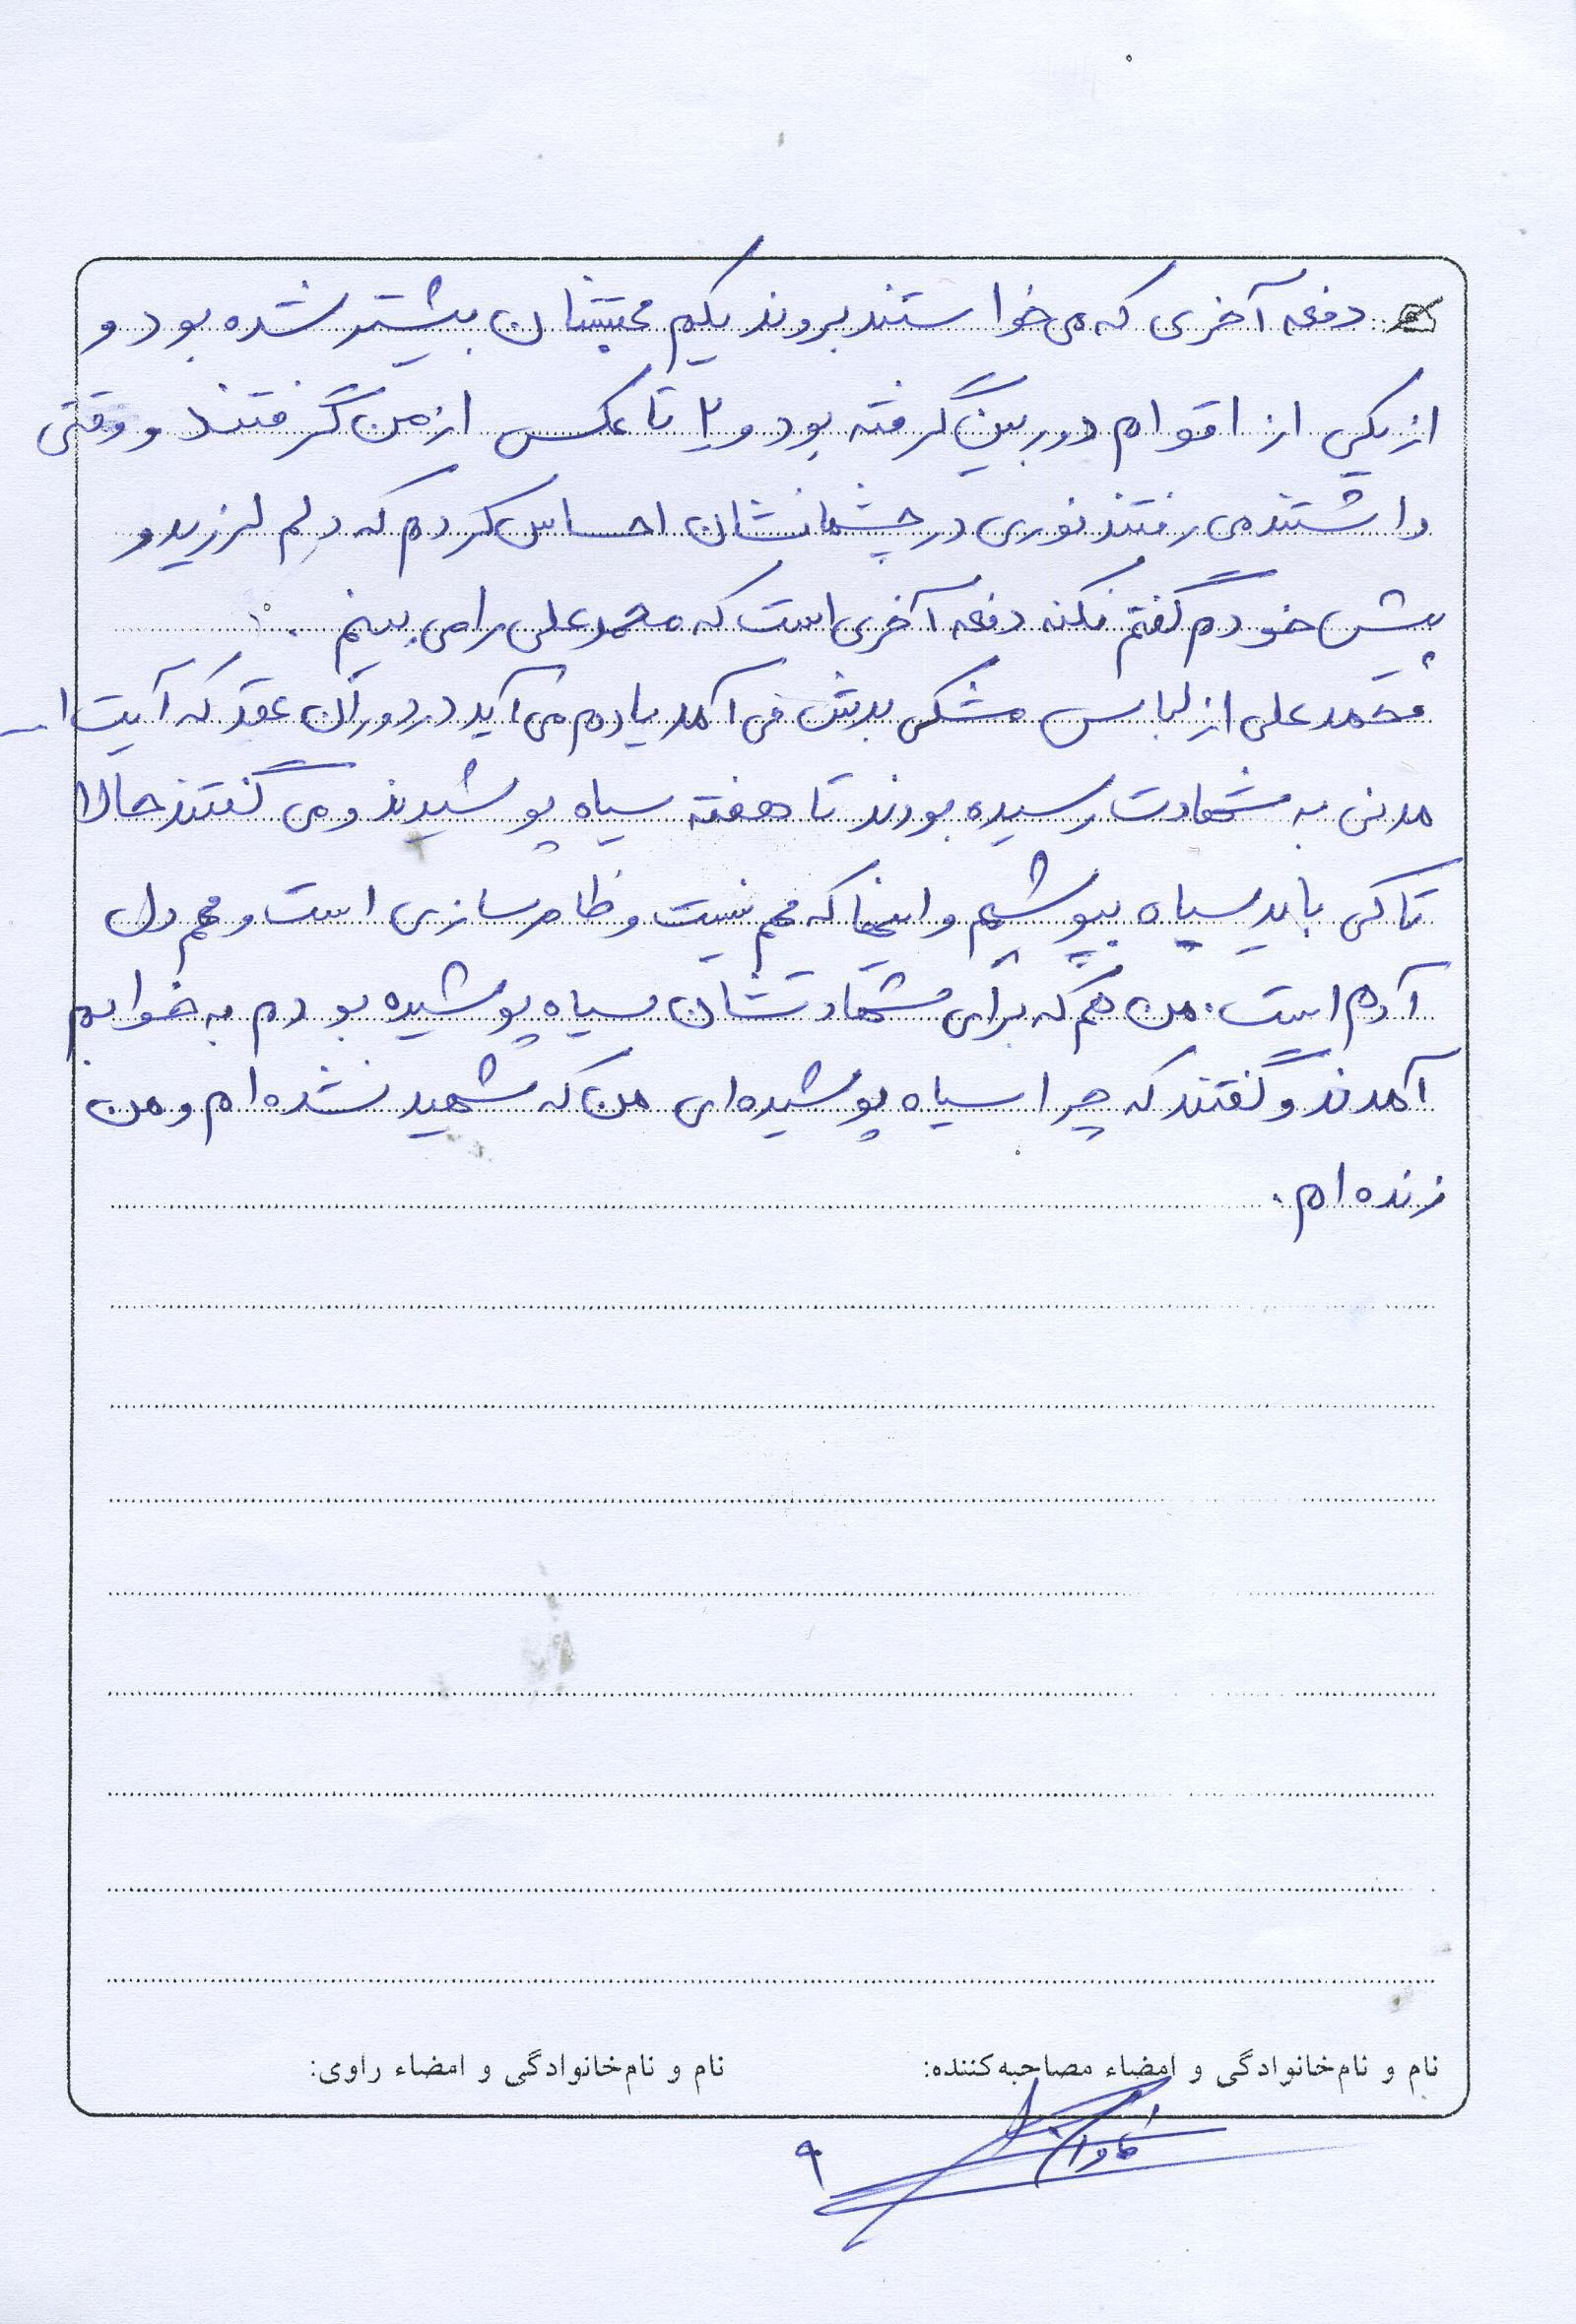 دفعه آخری که می خواستند بروند یکم محبتشان بیشتر شده بود و
از یکی از اقوام دوربین گرفته بود و ۲ تا عکس از من گرفتند و وقتی
داشتند می رفتند نوری در چشمانشان احساس کردم که دلم لرزید و
پیش خودم گفتم نکنه دفعه آخری است که محمدعلی را می بینم .
محمدعلی از لباس مشکی بدش می آمد یادم می آید در دوران عقد که آیت ا...
مدنی به شهادت رسیده بودند تا هفته سیاه پوشیدند و می گفتند حالا
تا کی باید سیاه بپوشیم و اینها که مهم نیست و ظاهرسازی است و مهم دل
آدم است . من هم که برای شهادتشان سیاه پوشیده بودم به خوابم
آمدند و گفتند که چرا سیاه پوشیده ای من که شهید نشده ام و من
زنده ام .
نام و نام‌خانوادگی و امضاء مصاحبه‌کننده: نام و نام‌خانوادگی و امضاء راوی:
۹